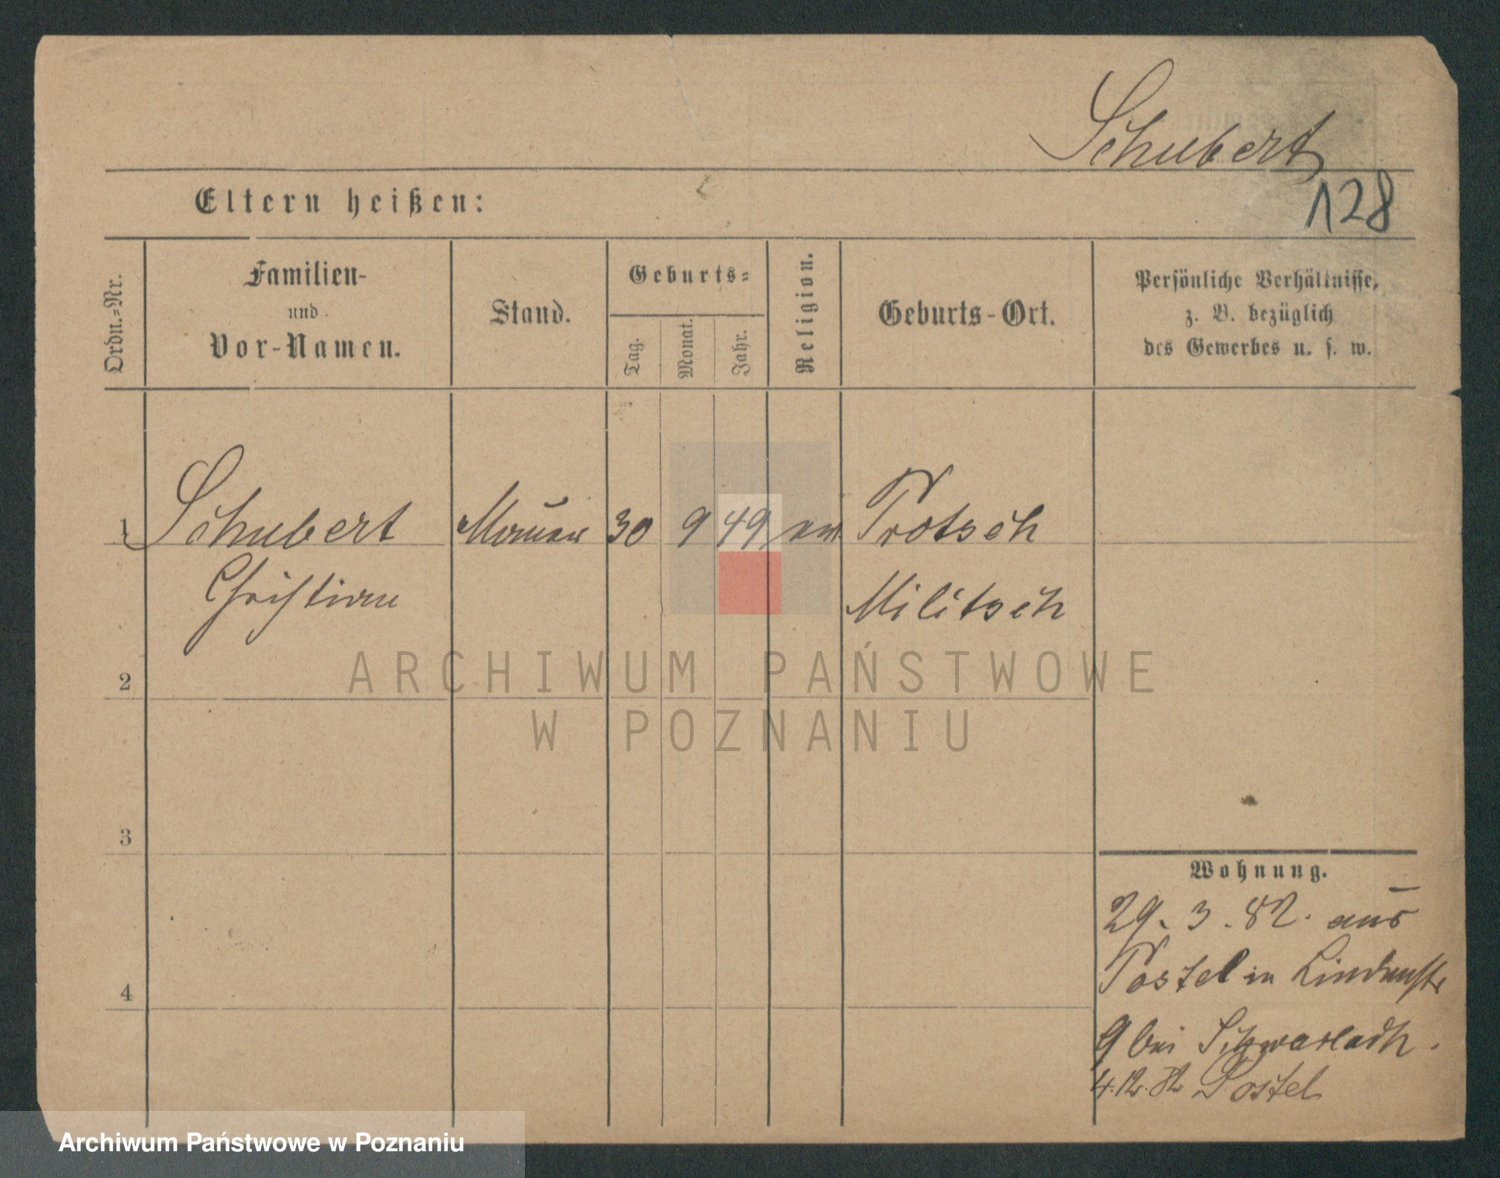 Schubert
128
Eltern heißen:
Ordn.-Nr.
Familien-
und
Vor-Namen.
Stand.
Geburts-
Tag.
Monat.
Jahr.
Religion.
Geburts-Ort.
Persönliche Verhältnisse,
z. B. bezüglich
des Gewerbes u. s. w.
1 Schubert Maurer 30 9 49 ev. Trotsch
Christian Militsch
2
ARCHIWUM PAŃSTWOWE
W POZNANIU
3
Wohnung.
29. 3. 82. aus
4
Postel in Lindenstr
9 bei
4.12.82 Postel
Archiwum Państwowe w Poznaniu